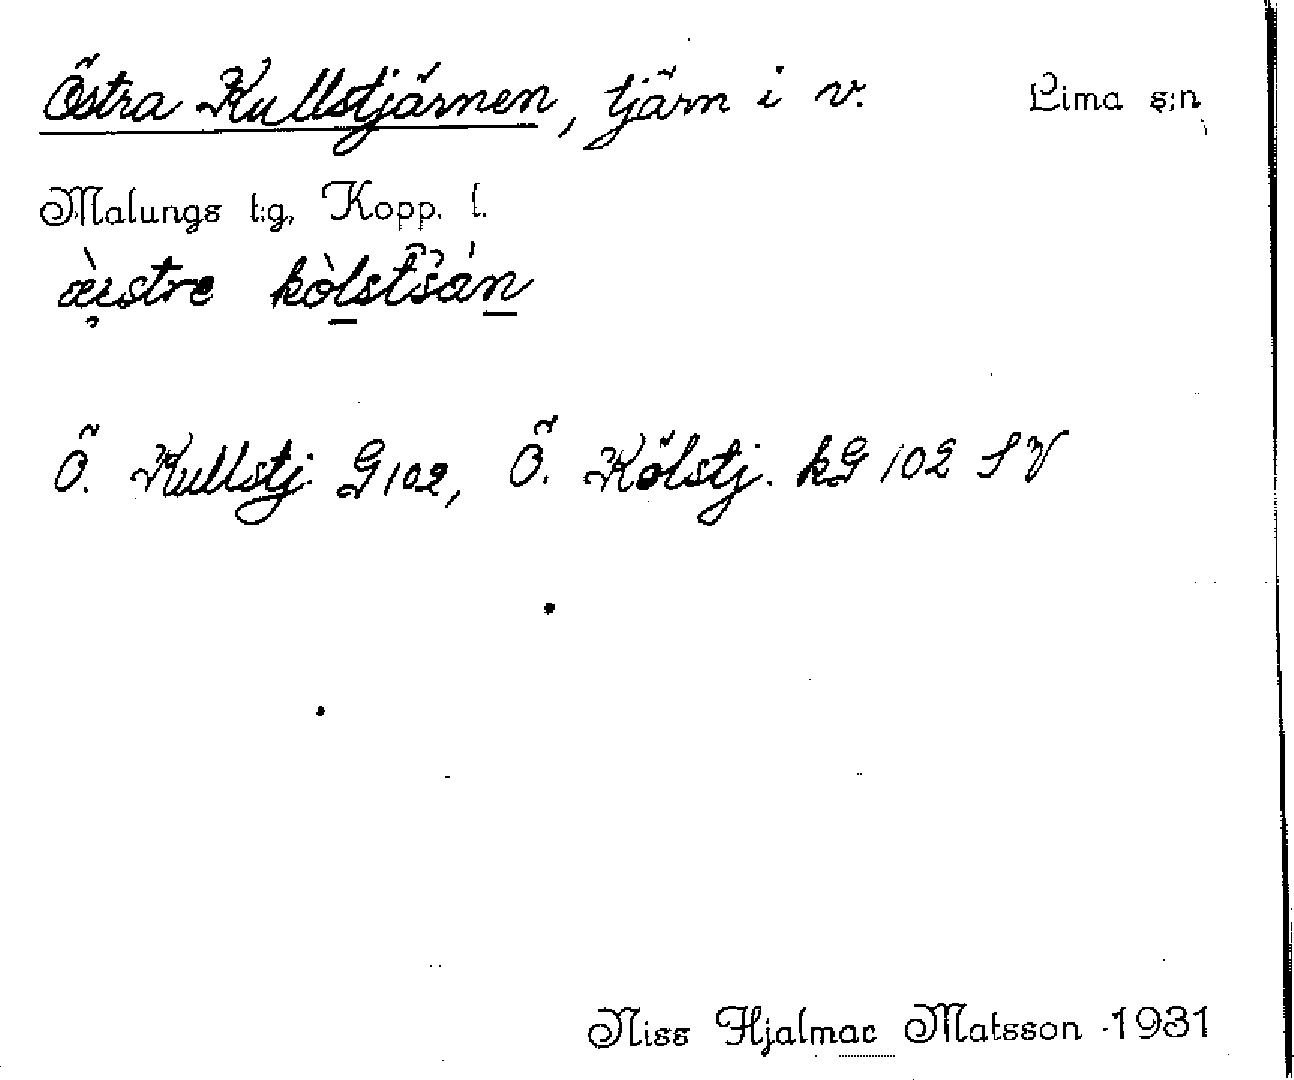 Östra Kullstjärnen, tjärn i v. Lima s:n
Malungs t:g, Kopp. l.
æ̀ıstre kòlstšán
Ö. Kullstj. G102, Ö. Kölstj. kG 102 SV
Niss Hjalmar Matsson 1931